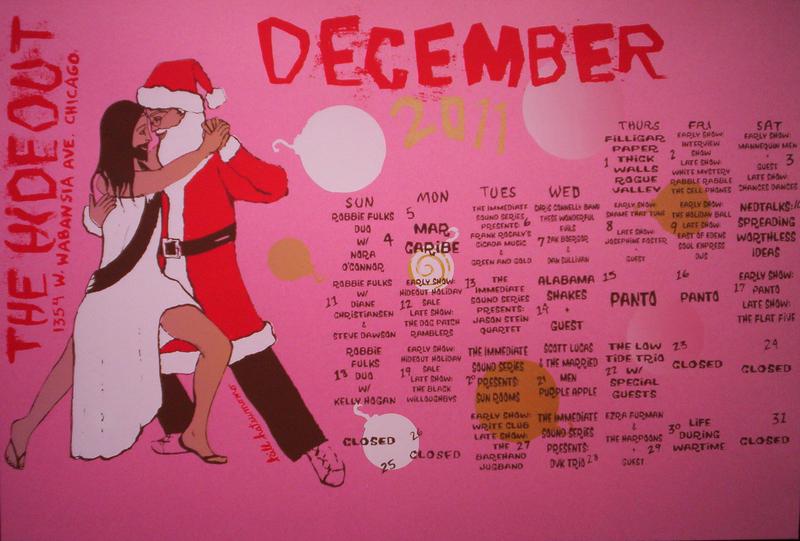 THE HIDEOUT
1354 W. WABANSIA AVE. CHICAGO.
DECEMBER
2011
SUN
MON
TUES
WED
THURS
FRI
SAT
FILLIGAR
PAPER
1 THICK
WALLS
ROGUE
VALLEY
EARLY SHOW:
INTERVIEW
2 SHOW
LATE SHOW:
WHITE MYSTERY
RABBLE RABBLE
THE CELL PHONES
EARLY SHOW:
MANNEQUIN MEN
+ 3
GUEST
LATE SHOW:
CHANCES DANCES
ROBBIE FULKS
DUO
W/ 4
NORA
O'CONNOR
5
MAR
CARIBE
THE IMMEDIATE
SOUND SERIES
PRESENTS: 6
FRANK ROSALY'S
CICADA MUSIC
&
GREEN AND GOLD
CHRIS CONNELLY BAND
THESE WONDERFUL
EVILS
7
&
DAN SULLIVAN
EARLY SHOW:
SHAME THAT TUNE
8 LATE SHOW:
JOSEPHINE FOSTER
GUEST
EARLY SHOW:
THE HOLIDAY BALL
9 LATE SHOW:
EAST OF EDENS
SOUL EXPRESS
DJS
NEDTALKS: 10
SPREADING
WORTHLESS
IDEAS
ROBBIE FULKS
11 W/
DIANE
CHRISTIANSEN
&
STEVE DAWSON
EARLY SHOW:
HIDEOUT HOLIDAY
12 SALE
LATE SHOW:
THE DOG PATCH
RAMBLERS
13 THE
IMMEDIATE
SOUND SERIES
PRESENTS:
JASON STEIN
QUARTET
ALABAMA
SHAKES
14 +
GUEST
15
PANTO
16
PANTO
EARLY SHOW:
17 PANTO
LATE SHOW:
THE FLAT FIVE
ROBBIE
FULKS
18 DUO
W/
KELLY HOGAN
EARLY SHOW:
HIDEOUT HOLIDAY
19 SALE
LATE SHOW:
THE BLACK
WILLOUGHBYS
THE IMMEDIATE
SOUND SERIES
20 PRESENTS:
SUN ROOMS
SCOTT LUCAS
& THE MARRIED
21 MEN
PURPLE APPLE
THE LOW
TIDE TRIO
22 W/
SPECIAL
GUESTS
23
CLOSED
24
CLOSED
CLOSED
25
26
CLOSED
EARLY SHOW:
WRITE CLUB
LATE SHOW:
THE 27
BAREHAND
JUGBAND
THE IMMEDIATE
SOUND SERIES
PRESENTS:
DVK TRIO 28
EZRA FURMAN
&
THE HARPOONS
29
GUEST
30 LIFE
DURING
WARTIME
31
CLOSED